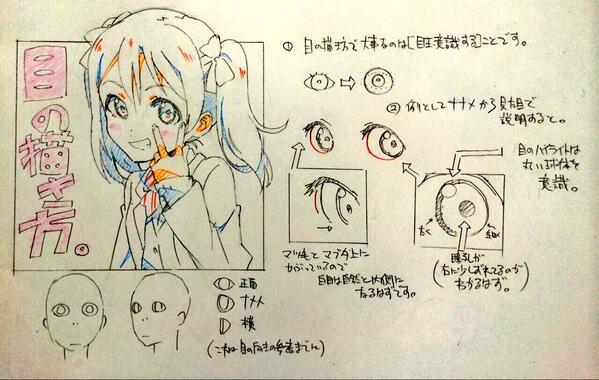 目の描き方。
① 目の描き方で大事なのは[目玉意識する]ことです。
② 例としてナナメから見た目で
説明すると。
目のハイライトは
丸い球体を
意識。
マツ毛とマブタ上に
かがっているので
白目は自然と内側に
なるはずです。
瞳孔が
右に少しずれてるのが
わかるはず。
正面
ナナメ
横